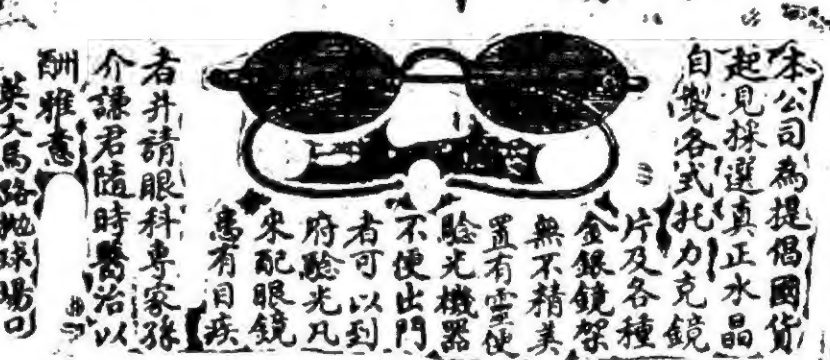 本公司為提倡國貨
起見採選真正水晶
自製各式托力克鏡
片及各種
金銀鏡架
無不精美
置有靈便
驗光機器
不便出門
者可以到
府驗光凡
來配眼鏡
患有目疾
者并請眼科專家孫
介謙君隨時醫治以
酬雅意
英大馬路拋球場口